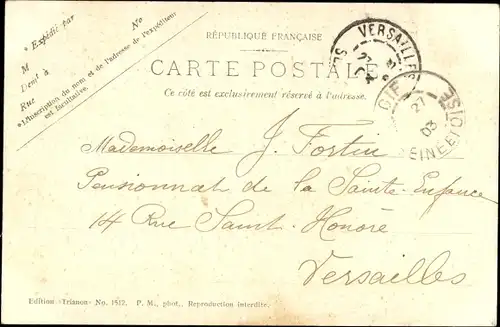 * Expédié par No
M
Demt à
Rue
*L'inscription du nom et de l'adresse de l'expéditeur
est facultative.
RÉPUBLIQUE FRANÇAISE
CARTE POSTALE
Ce côté est exclusivement réservé à l'adresse.
VERSAILLES
GIF
27
03
SEINE ET OISE
Mademoiselle J. Fortin
Pensionnat de la Sainte Enfance
14 Rue Saint-Honoré
Versailles
Edition «Trianon» No. 1512. P. M., phot., Reproduction interdite.